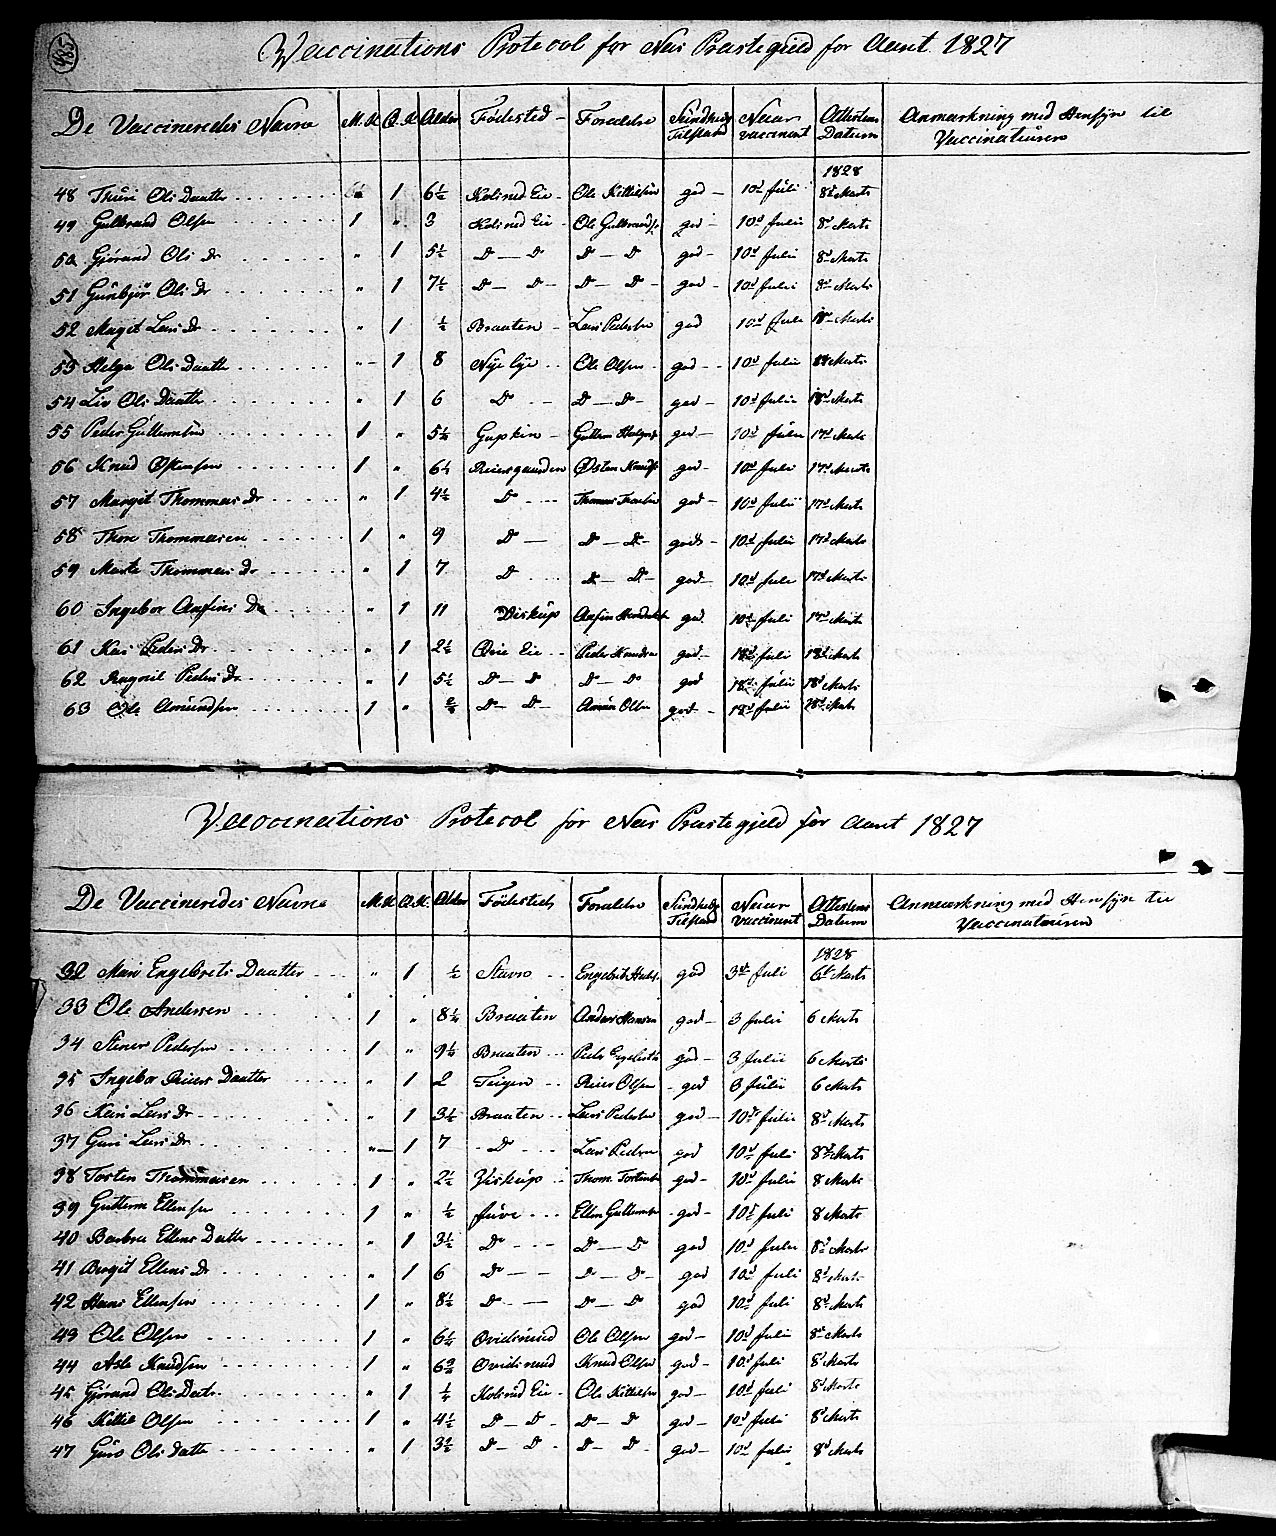 Vaccinations Protocol for Næs Præstegield for Aaret 1827
De Vaccineredes Navne M.K. Q.K. Alder Fødested Forældre Sundheds Tilstand Naar vaccineret Attestens Datum Anmærkning med Hensÿn til Vaccinationen
1828
48 Thuri Ols Daatter 1 6½ Kolsrud Eie Ole Kittilsen god 10d Juli 8d Marts
49 Gulbrand Olsen 1 " 3 Kolsrud Eie Ole Gulbrands. god 10d Julii 8d Marts
50 Gjørand Ols Dr " 1 5½ D — D D — D god 10d Julii 8d Marts
51 Gunbjør Ols Dr " 1 7½ D — D D — D god 10d Julii 8d Marts
52 Margit Lars Dr " 1 ½ Braaten Lars Pedersen god 10d Juli 18d Marts
53 Helga Ols Daatter " 1 8 Nye bye Ole Olsen god 10d Julii 18d Marts
54 Liv Ols Daatter " 1 6 D D — D god 10d Julii 18d Marts
55 Peder Guttormsen 1 " 5¼ Gupkin Guttorm Helges. god 10d Julii 17d Marts
56 Knud Østensen 1 " 6¼ Reiersgaarden Østen Knuds. god 10d Juli 17d Marts
57 Margit Thommas Dr " 1 4½ D Thomas god 10d Julii 17d Marts
58 Thore Thommasen 1 " 9 D D — D god 10d Julii 17d Marts
59 Marte Thommas Dr " 1 7 D D — D god 10d Juli 17d Marts
60 Ingebor Anfins Dr " 1 11 Viskup Anfin god 10d Juli 17d Marts
61 Kari Peders Dr " 1 2½ Eie Peder Knudsen god 18d Julii 18d Marts
62 Ragnil Peders Dr " 1 5½ D — D D — D god 18d Julii 18d Marts
63 Ole Amundsen 1 " D — D Amun Olsen god 18d Julii 18d Marts
Vaccinations Protocol for Næs Præstegjeld for Aaret 1827
De Vaccineredes Navne M.K. Q.K. Alder Fødested Forældre Sundheds Tilstand Naar vaccineret Attestens Datum Anmærkning med Hensÿn til Vaccinationen
1828
32 Mari Engebrets Daatter " 1 ½ Stavro Engebrit god 3d Juli 6d Marts
33 Ole Andersen 1 " 8¼ Braaten Anders Hansen god 3 Julii 6 Marts
34 Stener Pedersen 1 " 9¼ Braaten Peder Engebrets god 3 Julii 6 Marts
35 Ingebor Reiers Daatter " 1 2 Teigen Reier Olsen god 3 Julii 6 Marts
36 Kari Lars Dr " 1 3½ Braaten Lars Pedersen god 10d Julii 8d Marts
37 Guri Lars Dr " 1 7 D Lars Pedersen god 10d Julii 8d Marts
38 Torsten Thommasen 1 " 2½ Viskup Thom. Torstens. god 10d Julii 8 Marts
39 Guttorm Ellensen 1 " ½ Juve Ellen Guttormsen god 10d Juli 8 Marts
40 Barbro Ellens Datter " 1 3½ D D — D god 10d Julii 8d Marts
41 Birgit Ellens Dr " 1 6 D D — D god 10d Juli 8d Marts
42 Hans Ellensen 1 " 8½ D D — D god 10d Juli 8d Marts
43 Ole Olsen 1 " 6¼ Qvidsrud Ole Olsen god 10d Juli 8d Marts
44 Asle Knudsen 1 " 6¾ Qvidsrud Knud Olsen god 10d Juli 8d Marts
45 Gjørand Ols Datr " 1 ¼ Kolsrud Eie Ole Kittilsen god 10d Juli 8d Marts
46 Kittil Olsen 1 " 4½ D — D D — D god 10d Juli 8d Marts
47 Guro Ols Datter " 1 3¾ D — D D — D god 10d Juli 8d Marts